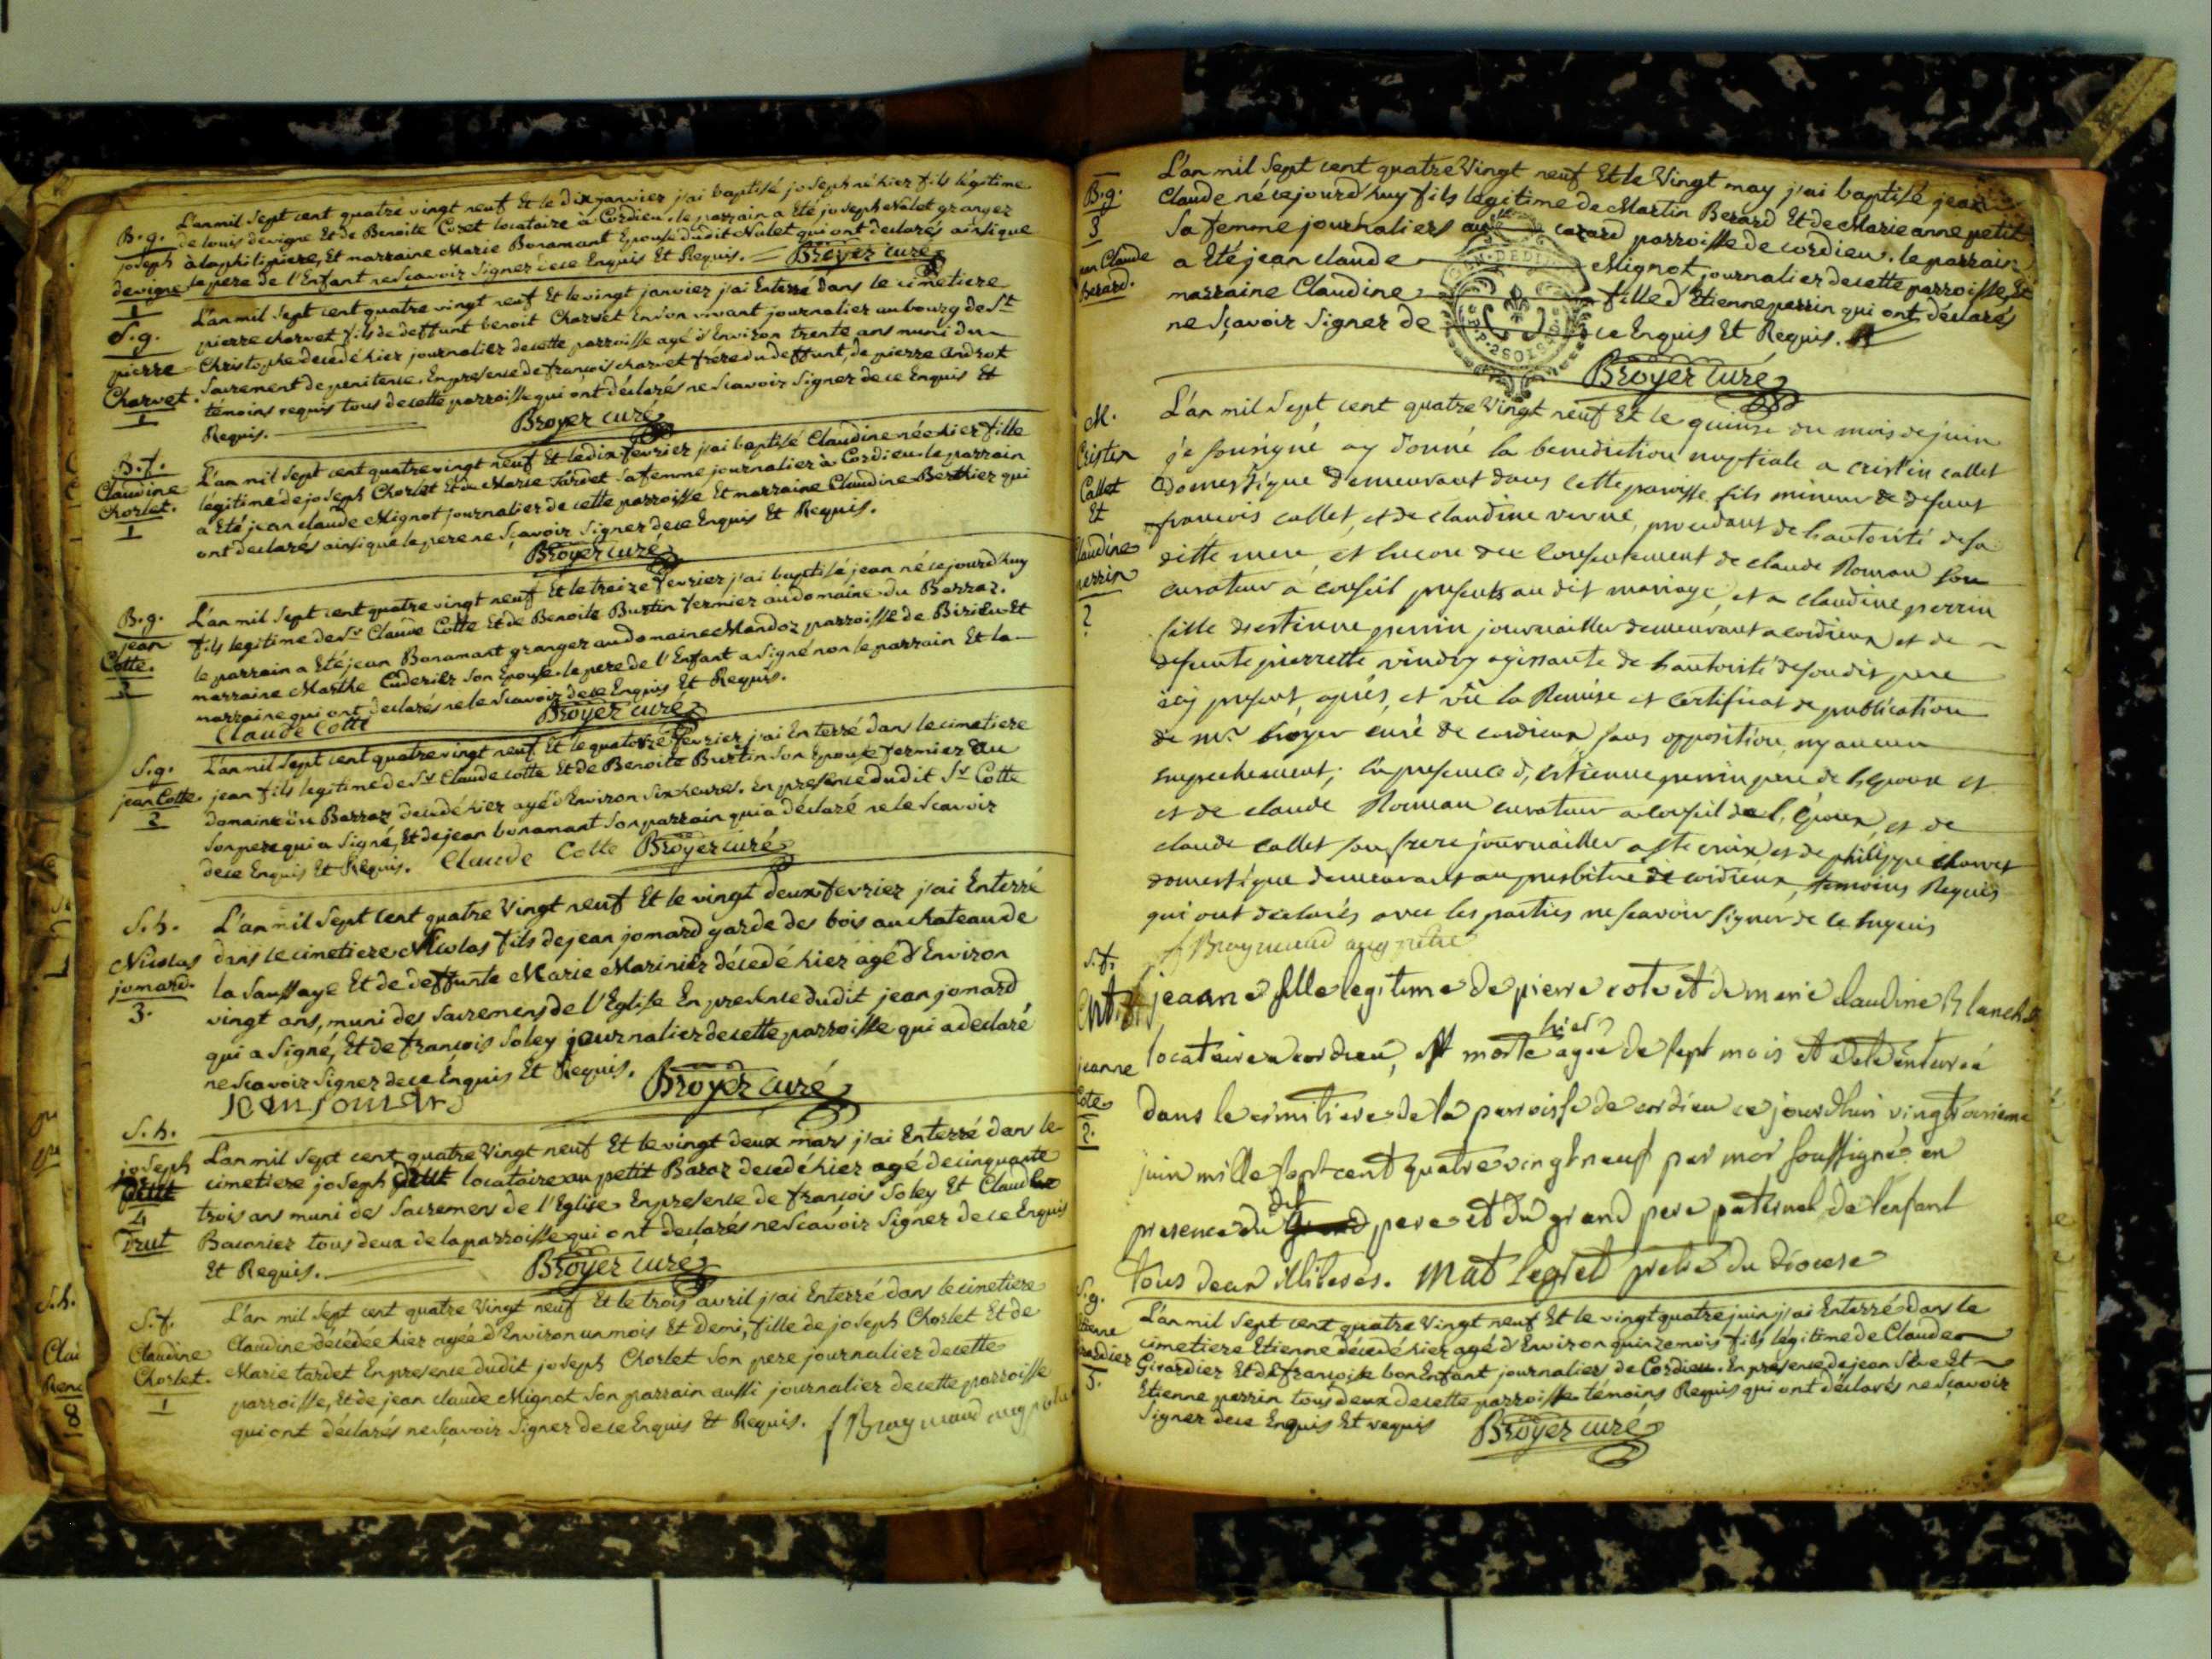 B.g.
joseph
devigne
1
L'an mil Sept cent quatre vingt neuf Et le dix janvier j'ai baptisé joseph né hier fils légitime
de louis devigne Et de Benoite Coret locataire à Cordieu. le parrain a Eté joseph Nalet granger
à la philipiere, Et marraine Marie Bonamant Epouse dudit Nalet qui ont declarés ainsi que
le pere de l'Enfant ne Scavoir Signer de ce Enquis Et Requis. Broyer curé
S.g.
pierre
Charvet.
1
L'an mil Sept cent quatre vingt neuf Et le vingt janvier j'ai Enterré dans le cimetiere
pierre charvet fils de deffunt benoit Charvet En son vivant journalier au bourg de St
Christophe decedé hier journalier de cette parroisse agé d'Environ trente ans muni du
Sacrement de penitence. En presence de françois charvet frere du deffunt, de pierre Androt
témoins requis tous de cette parroisse qui ont déclarés ne Scavoir Signer de ce Enquis Et
Requis. Broyer curé
B.f.
Claudine
Chorlet.
1
L'an mil Sept cent quatre vingt neuf Et le dix fevrier j'ai baptisé Claudine née hier fille
légitime de joseph Chorlet Et de Marie Tardet Sa femme journalier à Cordieu. le parrain
a Eté jean claude Mignot journalier de cette parroisse Et marraine Claudine Berthier qui
ont declarés ainsi que le pere ne Sçavoir Signer de ce Enquis Et Requis.
Broyer curé
B.g.
jean
Cotte.
1
L'an mil Sept cent quatre vingt neuf Et le treize fevrier j'ai baptisé jean né ce jourd'huy
fils legitime de Sr Claude Cotte Et de Benoite Burtin fermier au domaine du Barraz.
le parrain a Eté jean Bonamant granger au domaine Mandoz parroisse de Birieu Et
marraine Marthe Cuderier Son Epouse. le pere de l'Enfant a Signé non le parrain Et la
marraine qui ont declarés ne le Scavoir de ce Enquis Et Requis.
Claude Cotte Broyer curé
S.g.
jean Cotte
2
L'an mil Sept cent quatre vingt neuf Et le quatorze fevrier j'ai Enterré dans le cimetiere
jean fils legitime de Sr Claude cotte Et de Benoite Burtin Son Epouse fermier au
domaine du Barraz decedé hier agé d'Environ Six heures. En presence dudit Sr Cotte
Son pere qui a Signé, Et de jean bonamant Son parrain qui a déclaré ne le Scavoir
de ce Enquis Et Requis. Claude Cotte Broyer curé
S.h.
Nicolas
jomard.
3.
L'an mil Sept cent quatre Vingt neuf Et le vingt deux fevrier j'ai Enterré
dans le cimetiere Nicolas fils de jean jomard garde des bois au chateau de
la Saussaye Et de deffunte Marie Marinier décedé hier agé d'Environ
vingt ans, muni des Sacremens de l'Eglise En presence dudit jean jomard
qui a Signé, Et de françois Soley journalier de cette parroisse qui a declaré
ne Scavoir Signer de ce Enquis Et Requis. Broyer curé
Jean Jomard
S.h.
joseph
4
Trut
L'an mil Sept cent quatre Vingt neuf Et le vingt deux mars j'ai Enterré dans le
cimetiere joseph locataire au petit Baraz decedé hier agé de cinquante
trois ans muni des Sacremens de l'Eglise En presence de françois Soley Et Claude
Baconier tous deux de la parroisse qui ont declarés ne Scavoir Signer de ce Enquis
Et Requis. Broyer curé
S.f.
Claudine
Chorlet.
1
L'an mil Sept cent quatre Vingt neuf Et le trois avril j'ai Enterré dans le cimetiere
Claudine décédée hier agée d'Environ un mois Et Demi, fille de joseph Chorlet Et de
Marie tardet En presence dudit joseph Chorlet Son pere journalier de cette
parroisse, Et de jean claude Mignot Son parrain aussi journalier de cette parroisse
qui ont déclarés ne Sçavoir Signer de ce Enquis Et Requis. f Braymand
S.h.
Clai
Rene
8
B.g.
3
jean Claude
Berard.
L'an mil Sept cent quatre Vingt neuf Et le Vingt may j'ai baptisé jean
Claude né ce jourd'huy fils légitime de Martin Berard Et de Marie anne petit
Sa femme journaliers au cazard parroisse de cordieu. le parrain
a Eté jean claude Mignot journalier de cette parroisse, Et
marraine Claudine fille d'Etienne perrin qui ont déclarés
ne Sçavoir Signer de ce Enquis Et Requis.
Broyer Curé
M.
Cristin
Callet
Et
Claudine
perrin
2
L'an mil Sept cent quatre Vingt neuf Et le quinze du mois de juin
je sousigné ay donné la benediction nuptiale a cristin callet
domestique demeurant dans cette paroisse fils mineur de defunt
francois callet, et de claudine verne, procedant de l'autorité de sa
ditte mere, et encore du consentement de claude Roman son
curateur a conseil presents au dit mariage, et a claudine perrin
fille d'estienne perrin journaillier demeurant a cordieux et de
defunte pierrette vindry agissante de l'autorité de son dit pere
icy present, après, et vû la Remise et certificat de publication
de mr broyer curé de cordieux sans opposition, ny aucun
empechement; En presence d'estienne perrin pere de l'epouse et
et de claude Roman curateur a conseil de l'epoux, et de
claude callet son frere journaillier a ste croix et de philippe charvet
domestique demeurant au presbitere de cordieux, temoins Requis
qui ont declarés avec les parties ne scavoir signer de ce Enquis
f Braymand
S.f.
jeanne
Cote
2.
jeanne fille legitime de pierre cote et de marie claudine Blanchet
locataire a cordieu, est morte hier agée de sept mois et a eté enterrée
dans le cimitiere de la parroisse de cordieu ce jourdhui vingt troisieme
juin mille sept cent quatre vingt neuf par moi soussigné en
presence du dit pere et du grand pere paternel de l'enfant
tous deux illiterés. Mat legret pretre du diocese
S.g.
Etienne
Girardier
3.
L'an mil Sept cent quatre Vingt neuf Et le vingt quatre juin j'ai Enterré dans le
cimetiere Etienne décedé hier agé d'Environ quinze mois fils légitime de Claude
Girardier Et de françoise bon Enfant journaliers de Cordieu. En présence de jean Séve Et
Etienne perrin tous deux de cette parroisse témoins Requis qui ont déclarés ne Sçavoir
Signer de ce Enquis Et requis Broyer curé